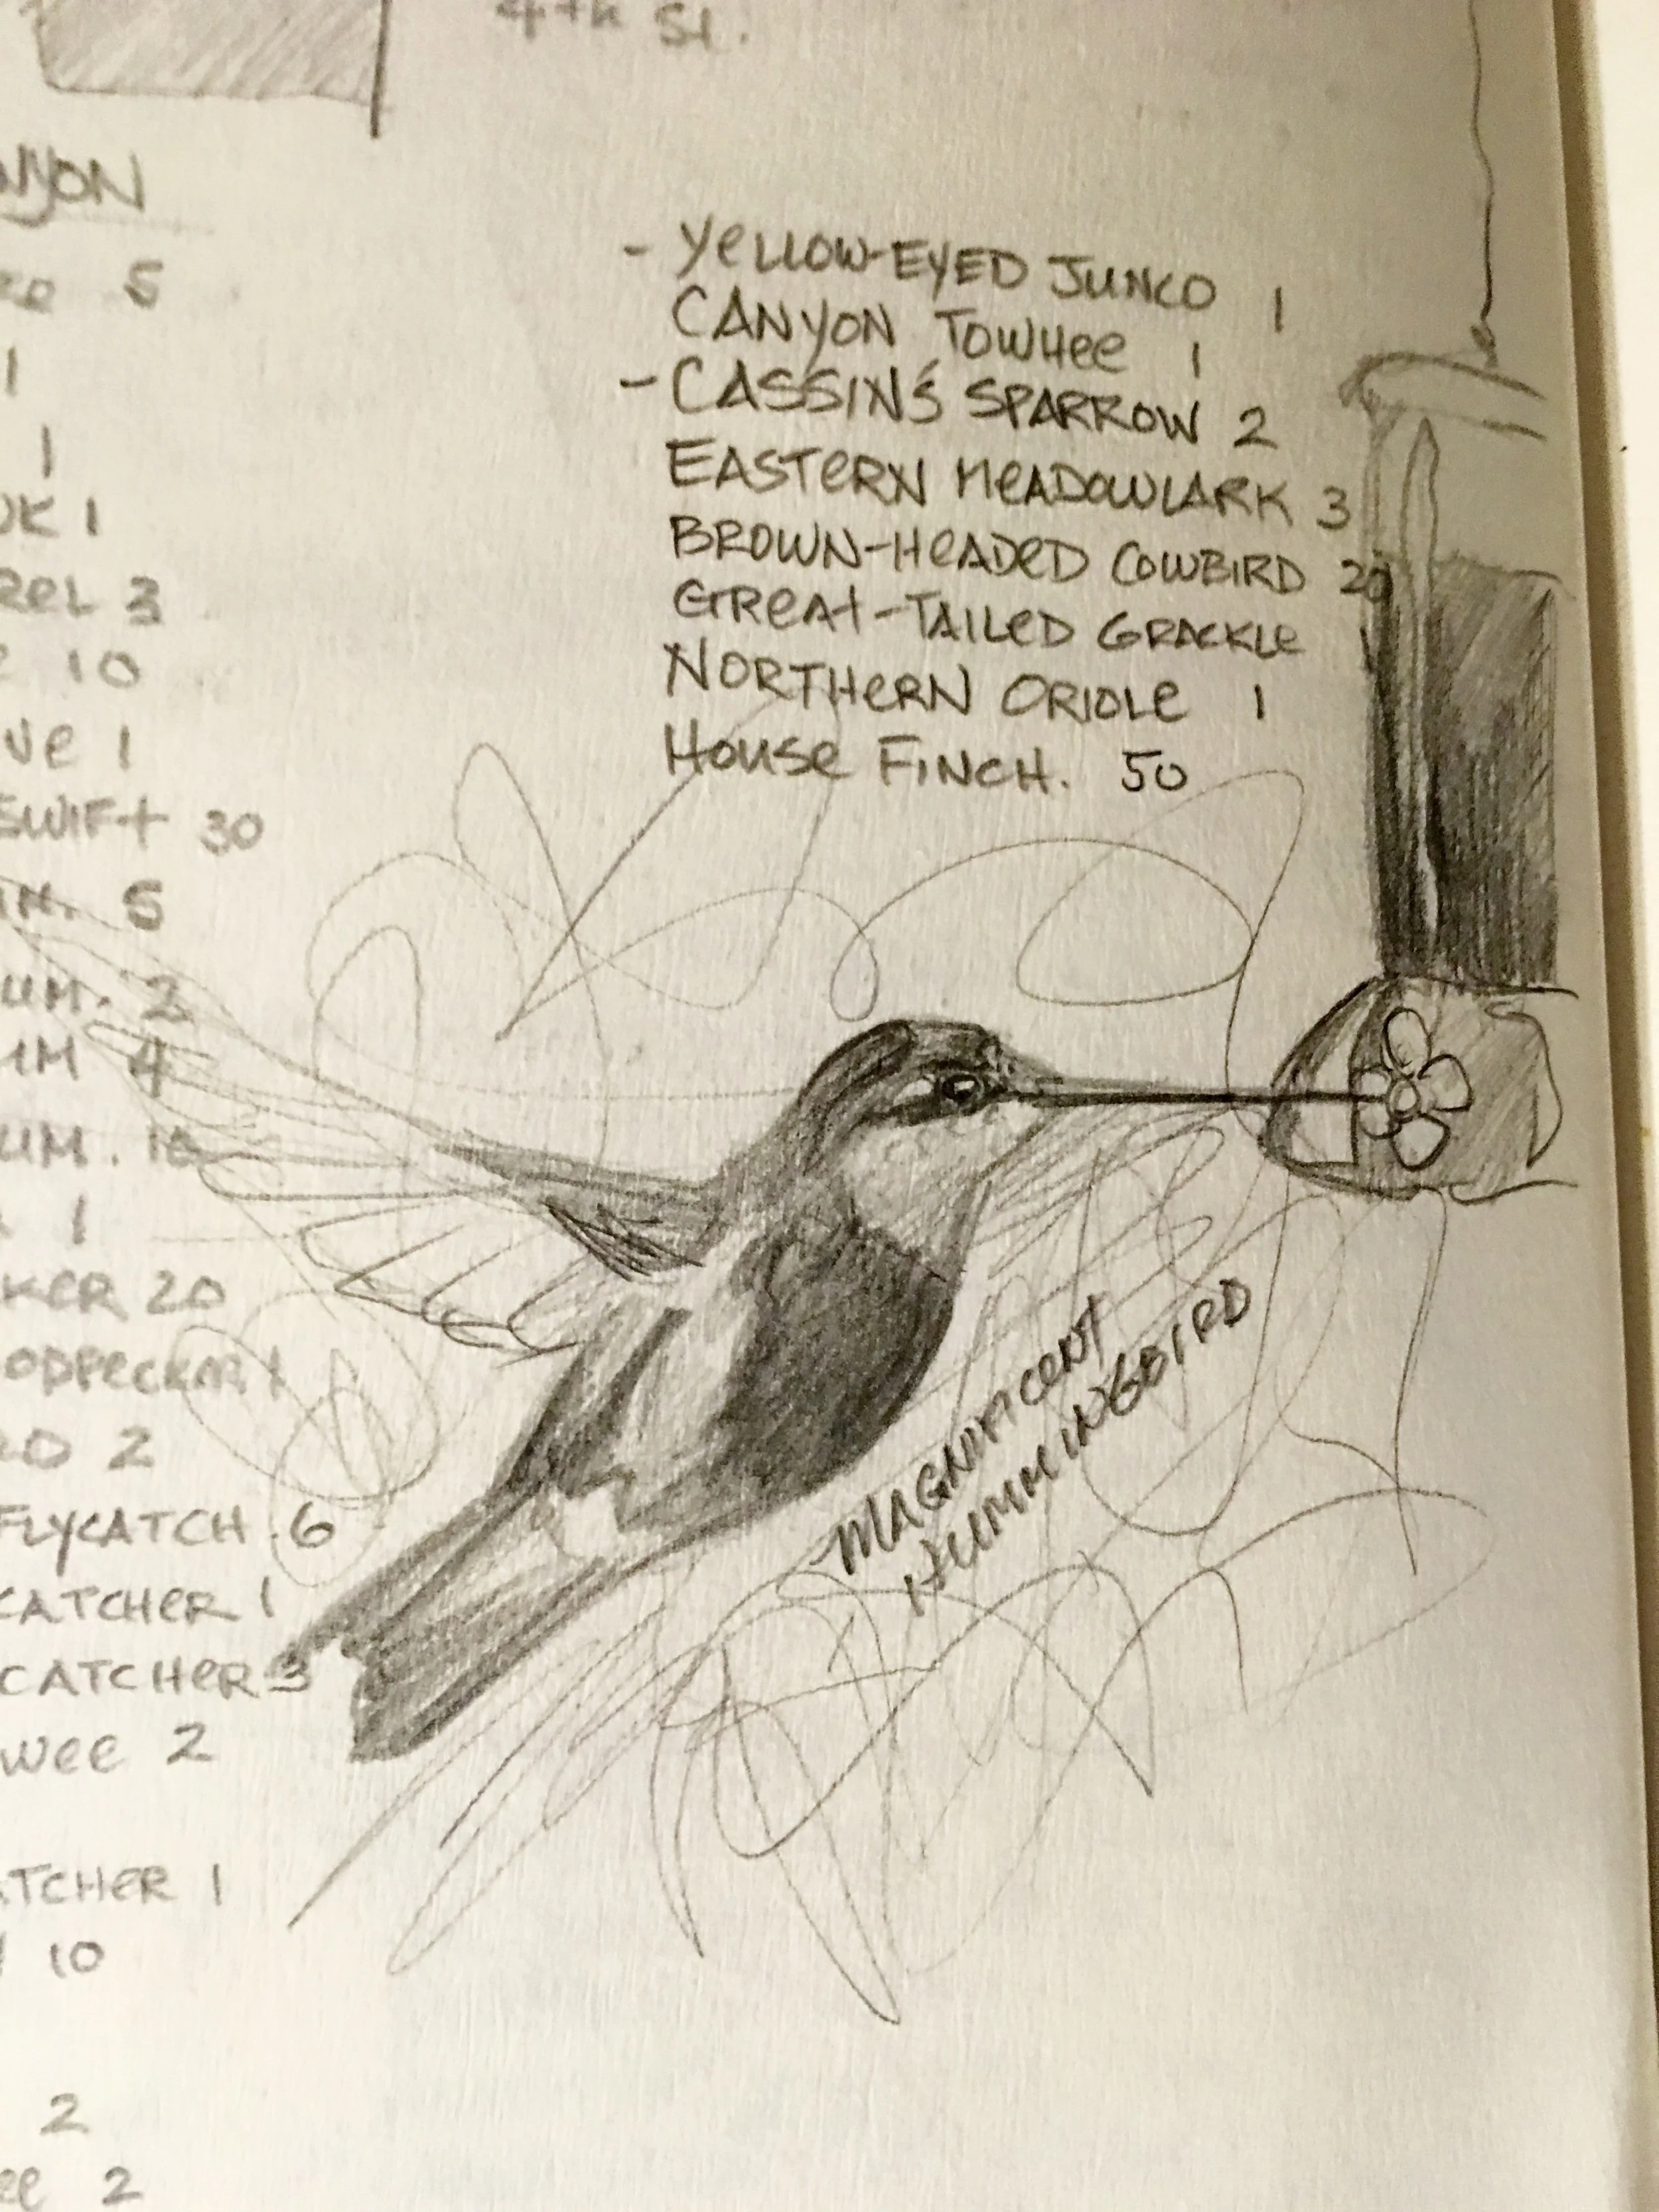 4th St.
NYON
5
1
1
OK 1
REL 3
10
VE 1
SWIFT 30
IN. 5
UM. 2
UM 4
UM.
1
KER 20
ODPECKER 1
RD 2
FLYCATCH. 6
CATCHER 1
CATCHER 3
WEE 2
TCHER 1
10
2
ee 2
- YELLOW-EYED JUNCO 1
CANYON TOWHEE 1
- CASSIN'S SPARROW 2
EASTERN MEADOWLARK 3
BROWN-HEADED COWBIRD 20
GREAT-TAILED GRACKLE 1
NORTHERN ORIOLE 1
HOUSE FINCH. 50
MAGNIFICENT
HUMMINGBIRD